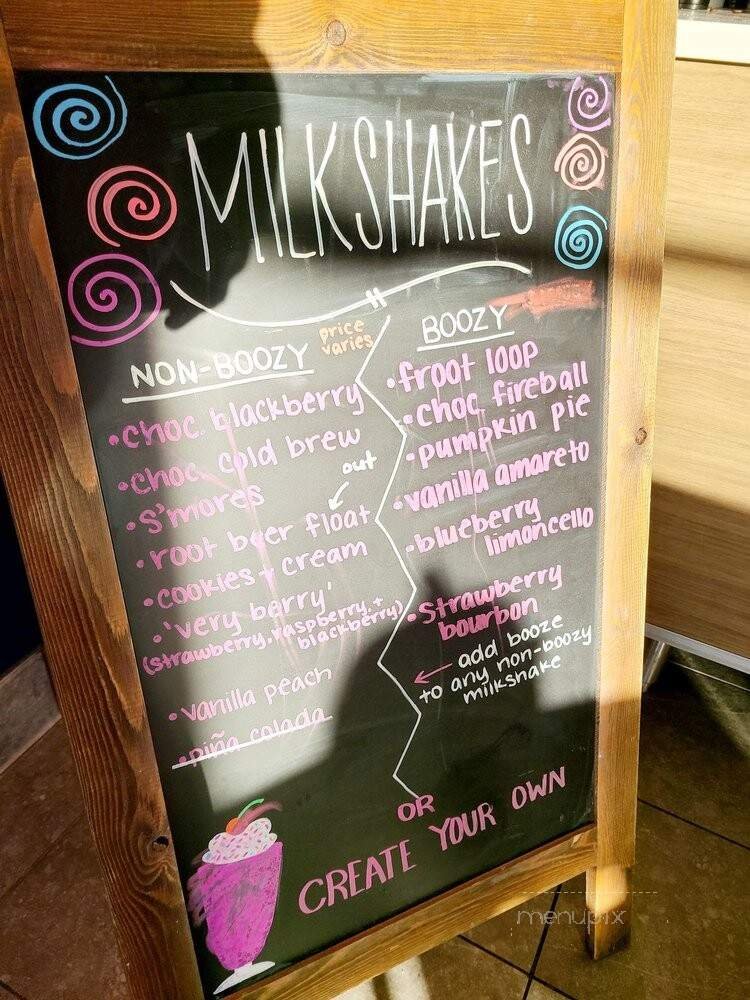 MILKSHAKES
NON-BOOZY
price
varies
• choc. blackberry
• choc. cold brew
• s'mores
out
• root beer float
• cookies + cream
• 'very berry'
(strawberry, raspberry, +
blackberry)
• vanilla peach
• piña colada
BOOZY
• froot loop
• choc fireball
• pumpkin pie
• vanilla amareto
• blueberry
limoncello
• Strawberry
bourbon
← add booze
to any non-boozy
milkshake
OR
CREATE YOUR OWN
menupix